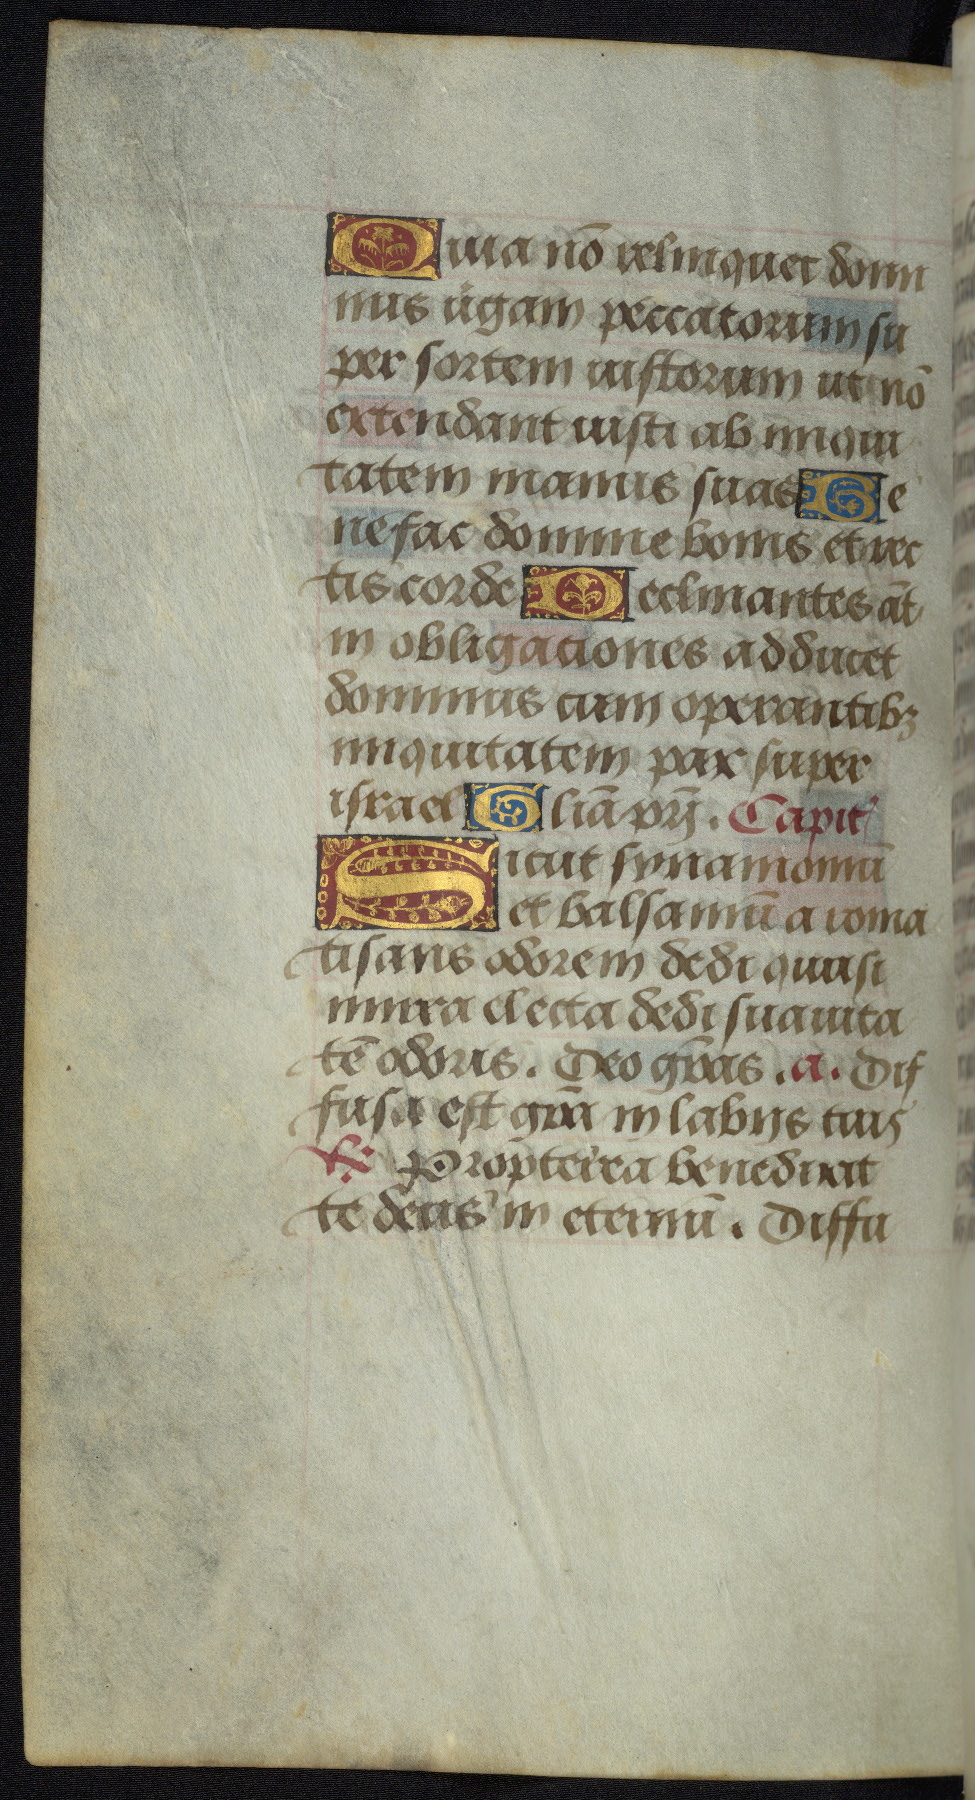 Quia nō relinquet domi
nus u̇gam peccatorum su
per sortem iustorum ut nō
extendant iusti ab iniqui
tatem manus suas Be
nefac domine bonis et rec
tis corde Declinantes āt
in obligationes adducet
dominus cum operantibꝫ
iniquitatem pax super
israel Gliā prj. Capit
Sicut synamomū
et balsamū a roma
tisans odorem dedi quasi
mirra electa dedi suauita
tē odoris. Deo grās .a. Dif
fusa est grā in labijs tuis
℟ Propterea benedixit
te deus in eternū. Diffu